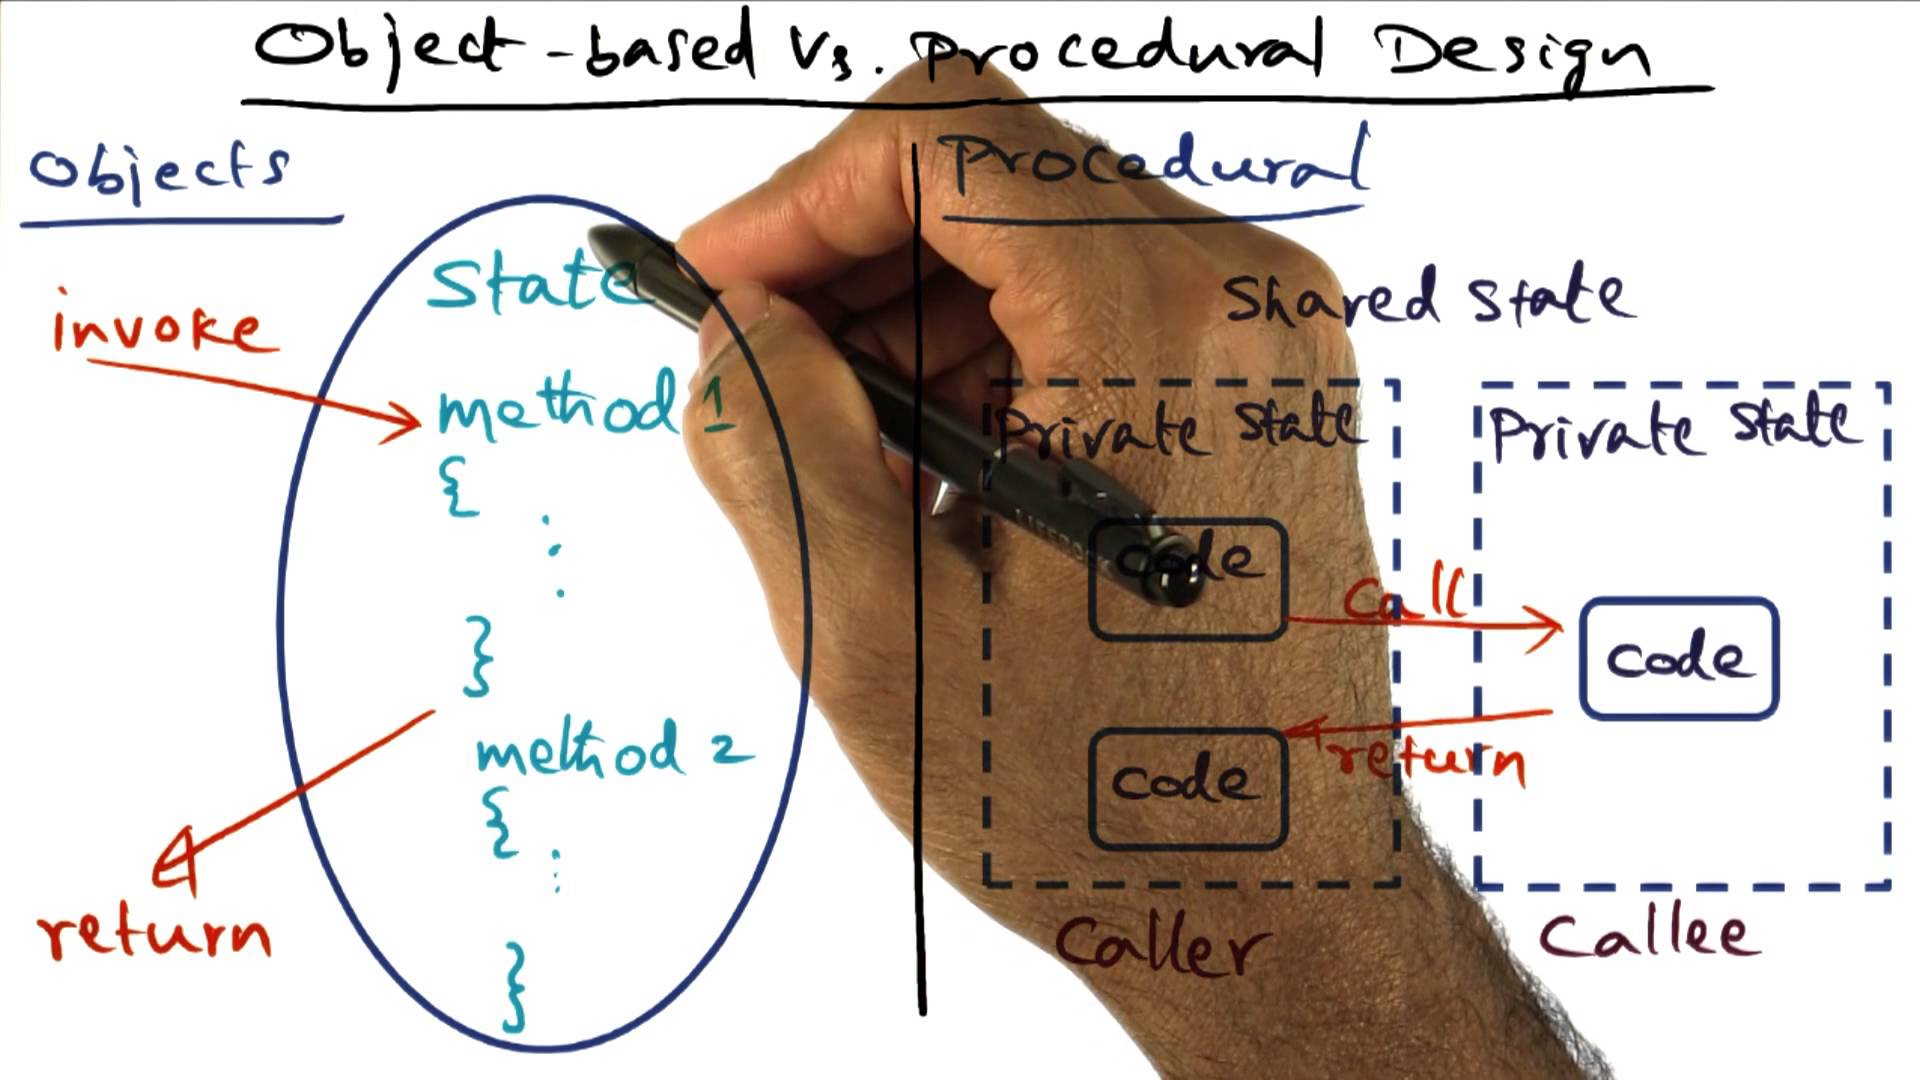 Object-based Vs. Procedural Design
Objects
invoke
State
method 1
{
}
method 2
{
}
return
Procedural
Shared State
Private State
code
code
Caller
call
return
Private State
code
Callee